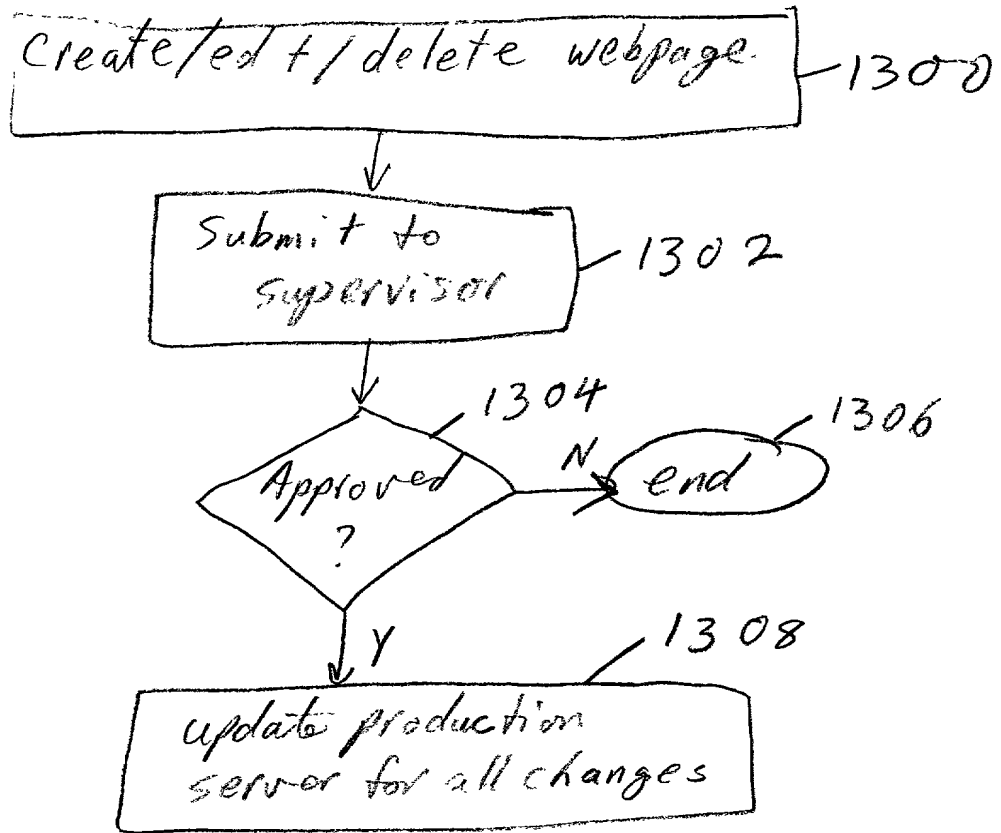 Create/edit/delete webpage.
1300
Submit to
supervisor
1302
1304
Approved
?
N
1306
end
Y
1308
update production
server for all changes